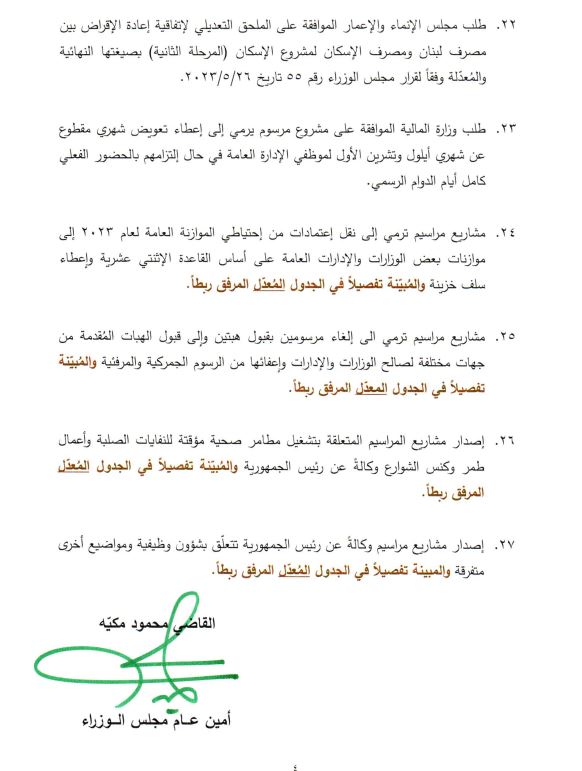 ٢٢. طلب مجلس الإنماء والإعمار الموافقة على الملحق التعديلي لإتفاقية إعادة الإقراض بين
مصرف لبنان ومصرف الإسكان لمشروع الإسكان (المرحلة الثانية) بصيغتها النهائية
والمُعدّلة وفقاً لقرار مجلس الوزراء رقم ٥٥ تاريخ ٢٠٢٣/٥/٢٦.
٢٣. طلب وزارة المالية الموافقة على مشروع مرسوم يرمي إلى إعطاء تعويض شهري مقطوع
عن شهري أيلول وتشرين الأول لموظفي الإدارة العامة في حال إلتزامهم بالحضور الفعلي
كامل أيام الدوام الرسمي.
٢٤. مشاريع مراسيم ترمي إلى نقل إعتمادات من إحتياطي الموازنة العامة لعام ٢٠٢٣ إلى
موازنات بعض الوزارات والإدارات العامة على أساس القاعدة الإثنتي عشرية وإعطاء
سلف خزينة والمُبيّنة تفصيلاً في الجدول المُعدّل المرفق ربطاً.
٢٥. مشاريع مراسيم ترمي الى إلغاء مرسومين بقبول هبتين وإلى قبول الهبات المُقدمة من
جهات مختلفة لصالح الوزارات والإدارات وإعفائها من الرسوم الجمركية والمرفئية والمُبيّنة
تفصيلاً في الجدول المعدّل المرفق ربطاً.
٢٦. إصدار مشاريع المراسيم المتعلقة بتشغيل مطامر صحية مؤقتة للنفايات الصلبة وأعمال
طمر وكنس الشوارع وكالةً عن رئيس الجمهورية والمُبيّنة تفصيلاً في الجدول المُعدّل
المرفق ربطاً.
٢٧. إصدار مشاريع مراسيم وكالةً عن رئيس الجمهورية تتعلّق بشؤون وظيفية ومواضيع أخرى
متفرقة والمبينة تفصيلاً في الجدول المُعدّل المرفق ربطاً.
القاضي محمود مكيّه
أمين عـام مجلس الـوزراء
٤